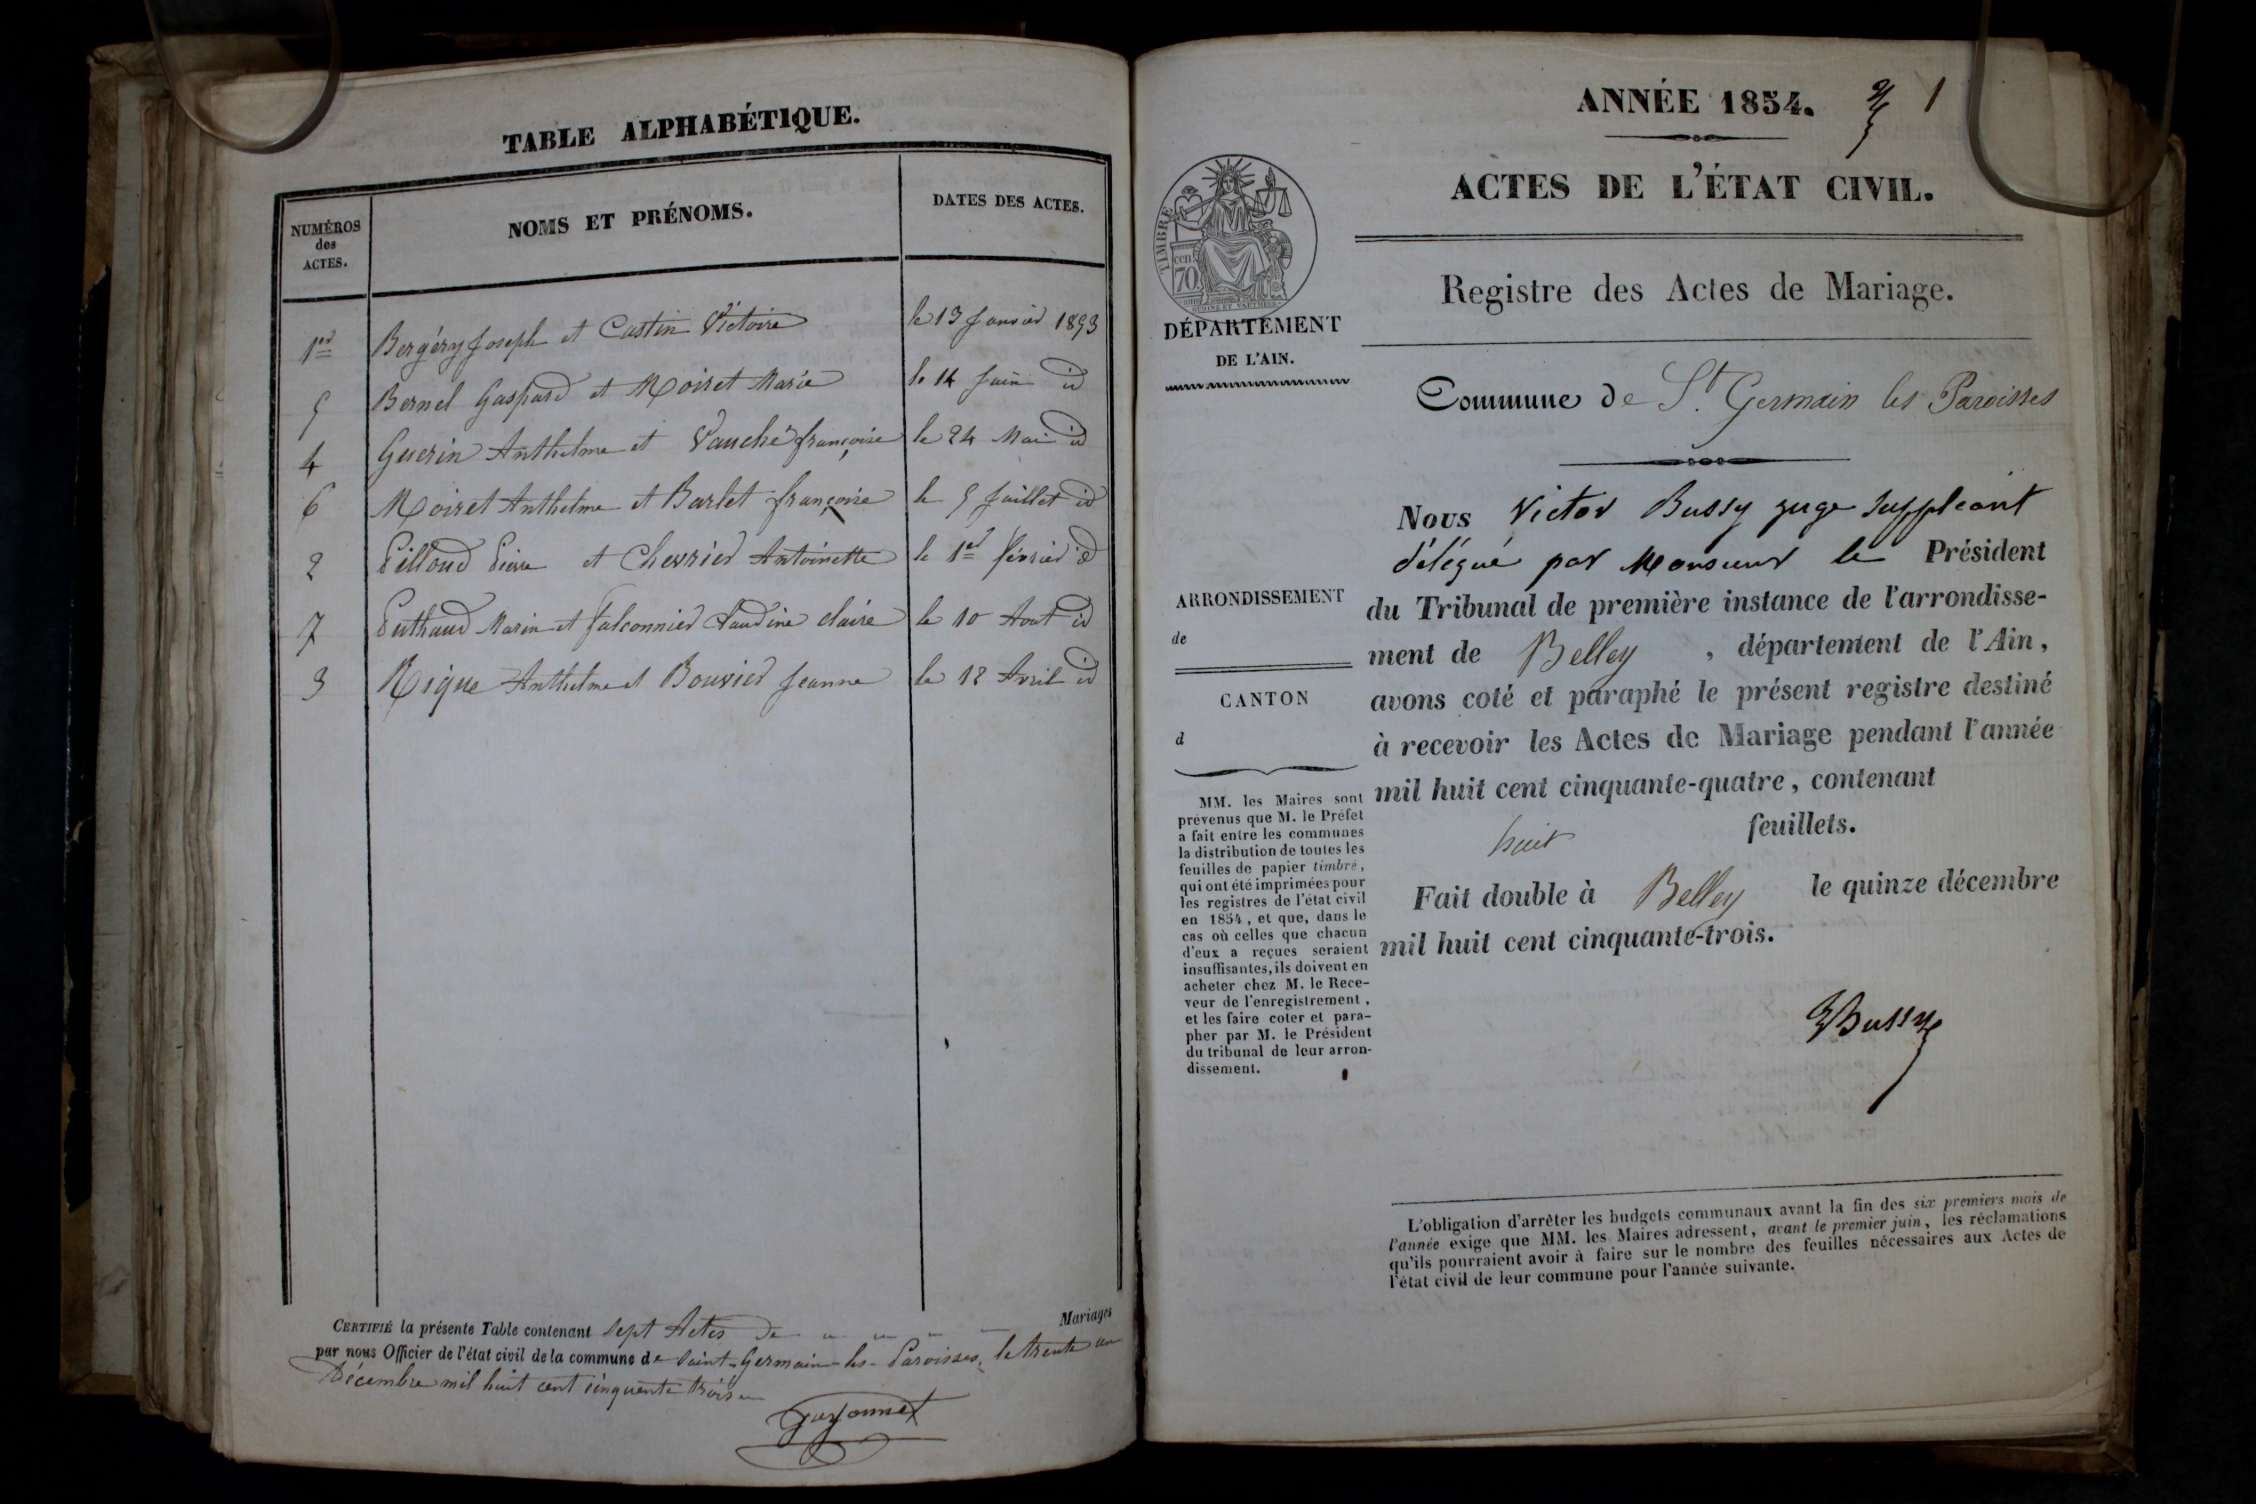 TABLE ALPHABÉTIQUE.
NUMÉROS des ACTES.
NOMS ET PRÉNOMS.
DATES DES ACTES.
1er Bergéry Joseph et Castin Victoire le 13 Janvier 1853
5 Bernel Gaspard et Moiret Marie le 14 Juin id
4 Guerin Anthelme et Vauché françoise le 24 Mai id
6 Moiret Anthelme et Barlet françoise le 5 Juillet id
2 Pilloud Pierre et Chevrier Antoinette le 1er février id
7 Puthaud Marin et falconnier Claudine claire le 10 Aout id
3 Rique Anthelme et Bouvier Jeanne le 12 Avril id
CERTIFIÉ la présente Table contenant sept Actes de Mariages
par nous Officier de l'état civil de la commune de Saint-Germain-les-Paroisses, le trente un
Décembre mil huit cent cinquante trois
ANNÉE 1854. 1
ACTES DE L'ÉTAT CIVIL.
Registre des Actes de Mariage.
TIMBRE
cen
70
DÉPARTEMENT
DE L'AIN.
Commune de St. Germain les Paroisses
Nous Victor Bussy juge suppléant
délégué par Monsieur le Président
du Tribunal de première instance de l'arrondisse-
ment de Belley, département de l'Ain,
avons coté et paraphé le présent registre destiné
à recevoir les Actes de Mariage pendant l'année
mil huit cent cinquante-quatre, contenant
huit feuillets.
Fait double à Belley le quinze décembre
mil huit cent cinquante-trois.
VBussy
ARRONDISSEMENT
de
CANTON
d
MM. les Maires sont
prévenus que M. le Préfet
a fait entre les communes
la distribution de toutes les
feuilles de papier timbré,
qui ont été imprimées pour
les registres de l'état civil
en 1854, et que, dans le
cas où celles que chacun
d'eux a reçues seraient
insuffisantes, ils doivent en
acheter chez M. le Rece-
veur de l'enregistrement,
et les faire coter et para-
pher par M. le Président
du tribunal de leur arron-
dissement.
L'obligation d'arrêter les budgets communaux avant la fin des six premiers mois de
l'année exige que MM. les Maires adressent, avant le premier juin, les réclamations
qu'ils pourraient avoir à faire sur le nombre des feuilles nécessaires aux Actes de
l'état civil de leur commune pour l'année suivante.